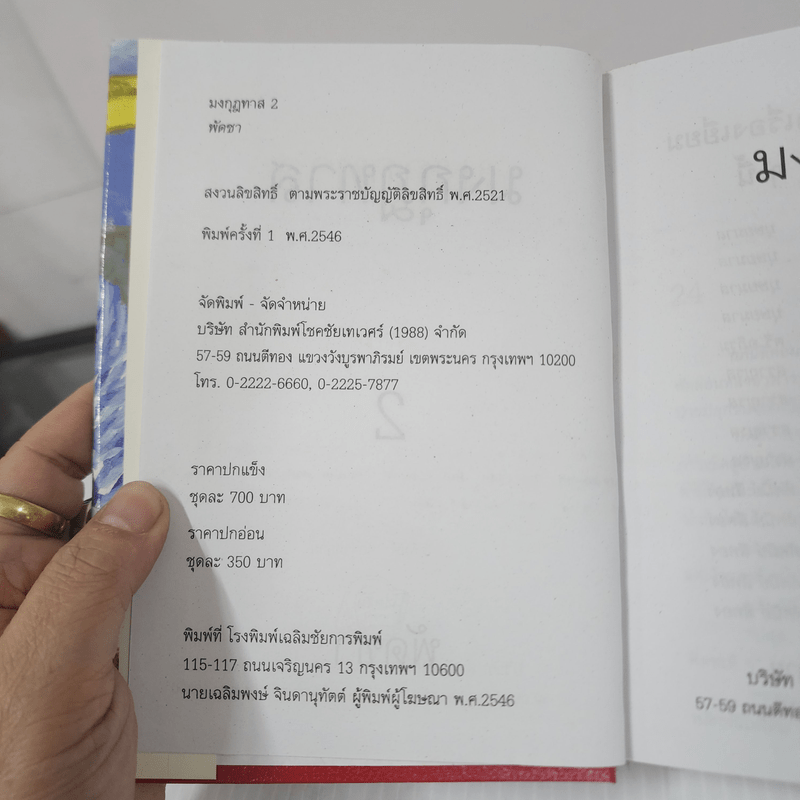 มงกุฎทาส 2
พัดชา
สงวนลิขสิทธิ์ ตามพระราชบัญญัติลิขสิทธิ์ พ.ศ.2521
พิมพ์ครั้งที่ 1 พ.ศ.2546
จัดพิมพ์ - จัดจำหน่าย
บริษัท สำนักพิมพ์โชคชัยเทเวศร์ (1988) จำกัด
57-59 ถนนตีทอง แขวงวังบูรพาภิรมย์ เขตพระนคร กรุงเทพฯ 10200
โทร. 0-2222-6660, 0-2225-7877
ราคาปกแข็ง
ชุดละ 700 บาท
ราคาปกอ่อน
ชุดละ 350 บาท
พิมพ์ที่ โรงพิมพ์เฉลิมชัยการพิมพ์
115-117 ถนนเจริญนคร 13 กรุงเทพฯ 10600
นายเฉลิมพงษ์ จินดานุทัตต์ ผู้พิมพ์ผู้โฆษณา พ.ศ.2546
บริษัท
57-59 ถนนตีทอ